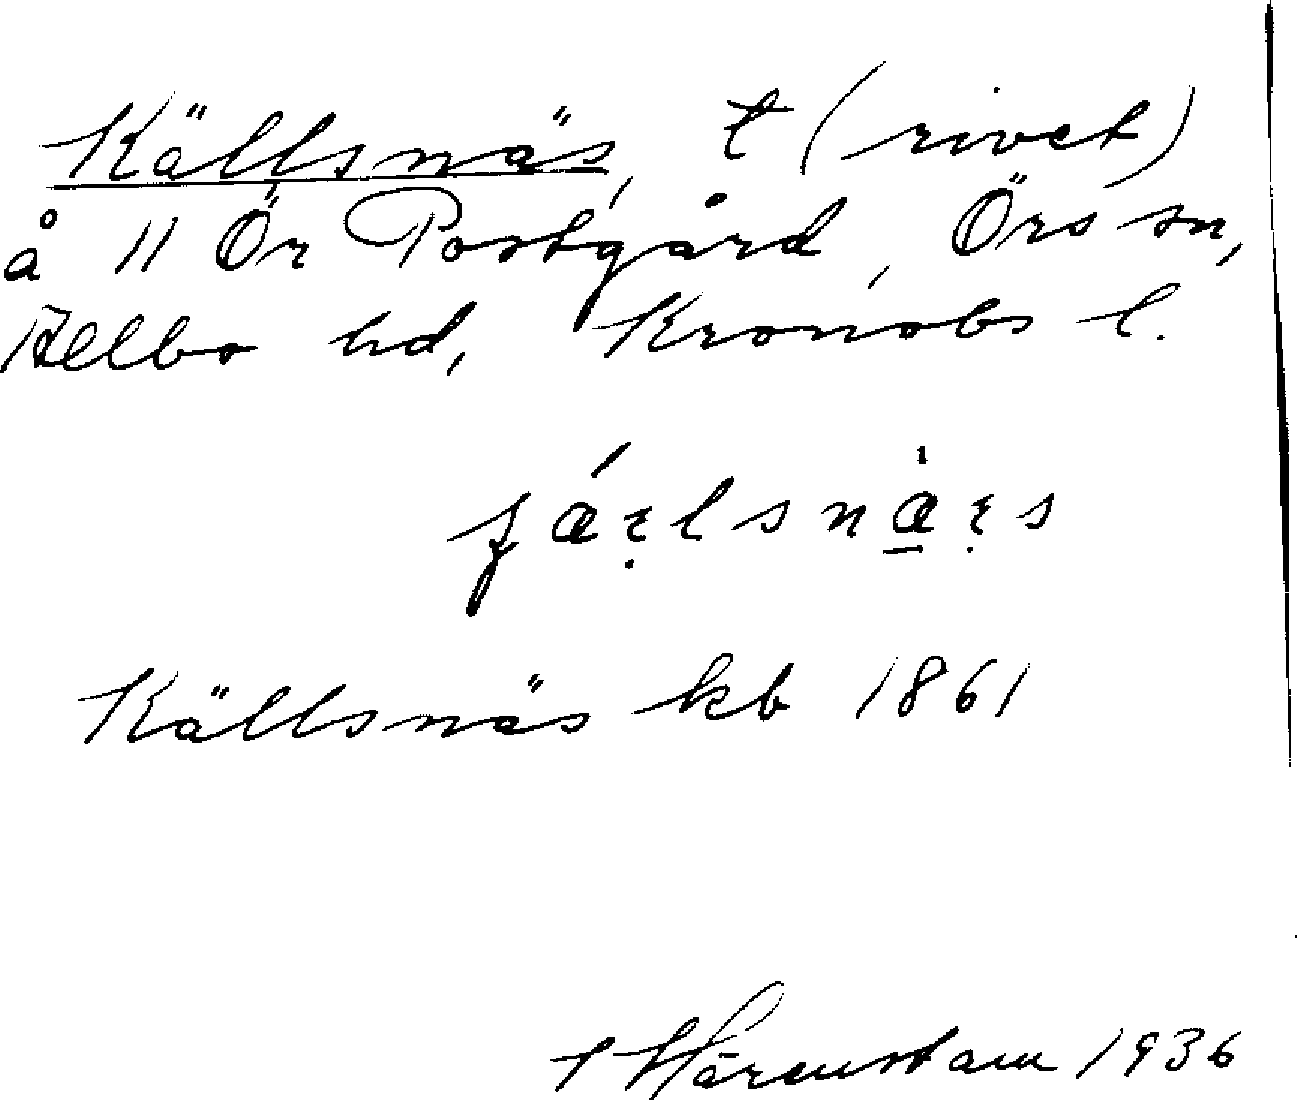 Källsnäs, t (rivet)
å 11 Ör Postgård, Örs sn,
Allbo hd, Kronobs l.
Källsnäs kb 1861
1936